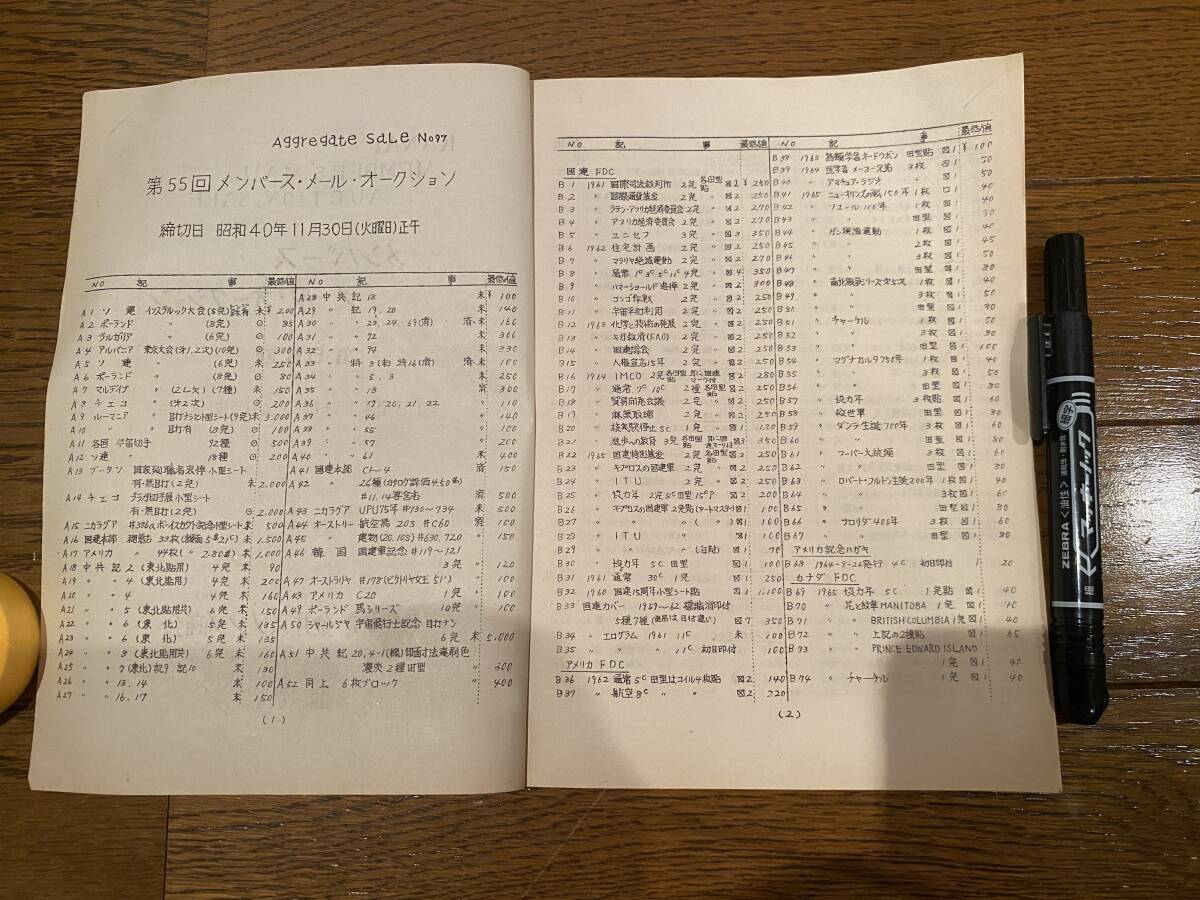 Aggregate Sale No97
第55回 メンバース・メール・オークション
締切日 昭和40年11月30日(火曜日)正午
NO 記 事 最低値
A 1 ソ 連 インスブルック大会(5完) 未 ¥ 200
A 2 ポーランド 〃 (8完) ⊙ 85
A 3 ブルガリア 〃 (6完) ⊙ 100
A 4 アルバニア 東京大会(オ1.2次)(10完) ⊙ 300
A 5 ソ 連 〃 (6完) 未 250
A 6 ポーランド 〃 (8完) ⊙ 80
A 7 マルディブ 〃 (2L欠)(7種) 未 150
A 8 チェコ 〃 (オ2次) ⊙ 200
A 9 ルーマニア 〃 目打ナシと小型シート(9完) 未 3,000
A 10 〃 〃 目打有 (8完) ⊙ 100
A 11 各国 宇宙切手 92種 ⊙ 500
A 12 ソ連 〃 18種 ⊙ 200
A 13 ブータン 国家殉職者哀悼 小型シート
有・無目打(2完) 未 2,000
A 14 チェコ プラハ切手展小型シート
有・無目打(2完) ⊙ 2,000
A 15 ニカラグア #336a ボーイスカウト記念小型シート 未 500
A 16 国連本部 33枚(額面 5$21C) 未 1,500
A 17 アメリカ 〃 44枚( 〃 2.80$) 未 1,000
A 18 中共記 2 (東北貼用) 4完 未 90
A 19 〃 〃 4 (東北貼用) 4完 未 200
A 20 〃 〃 4 4完 未 160
A 21 〃 〃 5 (東北貼用共) 6完 未 150
A 22 〃 〃 6 (東 北) 5完 未 135
A 23 〃 〃 6 (東 北) 5完 未 135
A 24 〃 〃 8 (東北貼用共) 6完 未 160
A 25 〃 〃 7 (東北)記9 記10 未 130
A 26 〃 〃 13.14 未 100
A 27 〃 〃 16.17 未 150
NO 記 事 最低値
A 28 中共記 18 未 ¥ 100
A 29 〃 記 19.20 未 140
A 30 〃 〃 23.24.69(済) 済・未 160
A 31 〃 〃 72 未 360
A 32 〃 〃 74 未 330
A 33 〃 特 3(未) 特16(済) 済・未 100
A 34 〃 〃 5.8 未 250
A 35 〃 〃 18 済 300
A 36 〃 〃 19.20.21.22 〃 110
A 37 〃 〃 46 〃 140
A 38 〃 〃 55 〃 100
A 39 〃 〃 57 未 260
A 40 〃 〃 61 未 400
A 41 国連本部 C1〜4 済 150
A 42 〃 26種(カタログ評価 4.50$)
#11.14等含む 済 500
A 43 ニカラグア UPU75年 #730〜734 未 500
A 44 オーストリー 航空高 20S #C60 済 100
A 45 〃 建物(20.10S)#630,720 〃 150
A 46 韓 国 国連軍記念 #119〜121
3完 〃 120
A 47 オーストラリヤ #178(ビクトリヤ女王 5/) 〃 100
A 48 アメリカ C20 1完 〃 100
A 49 ポーランド 馬シリーズ 10完 〃 100
A 50 シャールジャ 宇宙飛行士記念 目打ナシ
6完 未 5,000
A 51 中共記 20,4-1(蝶)印面寸法違刷色
濃淡 2種田型 〃 300
A 52 同上 6枚ブロック 〃 400
(1)
NO 記 事 最低値
国連 FDC
B 1 1961 国際司法裁判所 2完 各田型貼 図2 ¥ 250
B 2 〃 国際通貨基金 2完 〃 図2 250
B 3 〃 ラテン・アメリカ経済委員会 2完 〃 図2 270
B 4 〃 アフリカ経済委員会 2完 〃 図2 270
B 5 〃 ユニセフ 3完 〃 図3 350
B 6 1962 住宅計画 2完 〃 図2 250
B 7 〃 マラリヤ絶滅運動 2完 〃 図2 250
B 8 〃 通常 1C 3C 5C 11C 4完 〃 図4 350
B 9 〃 ハマーショールド追悼 2完 〃 図2 300
B 10 〃 コンゴ作戦 2完 〃 図2 250
B 11 〃 宇宙平和利用 2完 〃 図2 250
B 12 1963 化学と技術の発展 2完 〃 図2 250
B 13 〃 キガ救済(FAO) 2完 〃 図2 250
B 14 〃 国連総会 2完 〃 図2 250
B 15 〃 人権宣言15年 2完 〃 図2 250
B 16 1964 IMCO 2完 各田型貼 耳に国連マーク付 図2 280
B 17 〃 通常 7C 10C 2種 各田型貼 図2 250
B 18 〃 貿易開発会議 2完 〃 図2 250
B 19 〃 麻薬取締 2完 〃 図2 250
B 20 〃 核実験停止 5C 1完 〃 図1 120
B 21 〃 進歩への教育 3完 各田型貼 図3 350
B 22 1965 国連特別基金 2完 各田型貼 図2 250
B 23 〃 キプロスの国連軍 2完 〃 図2 250
B 24 〃 ITU 2完 〃 図2 250
B 25 〃 協力年 2完 5C田型 15C P 図2 200
B 26 〃 キプロスの国連軍 2完貼 図1 100
B 27 〃 〃 〃 ( 〃 ) 図1 160
B 28 〃 ITU 〃 図1 100
B 29 〃 〃 〃 図1 70
B 30 〃 協力年 5C 田型 図1 100
B 31 1961 通常 30C 1完 図1 250
B 32 1960 国連15周年小型シート貼 図1 1,100
B 33 国連カバー 1959〜62 標識消印付
5種7種 図7 350
B 34 〃 エログラム 1961 11C 未 100
B 35 〃 〃 〃 11C 初日印付 100
アメリカ FDC
B 36 1962 通常 5C 田型はコイル4枚貼 図2 140
B 37 〃 航空8C 〃 〃 図2 220
NO 記 事 最低値
B 38 1963 オードウボン 田型貼 図1 ¥ 100
B 39 1964 医学者メーヨー兄弟 3枚 図1 50
B 40 〃 アマチュアラジオ 〃 図1 50
B 41 1965 ニューオリンズの戦150年 1枚 図1 40
B 42 〃 ソエール 100年 1枚 図1 40
B 43 〃 〃 田型 図1 30
B 44 〃 ガン撲滅運動 1枚 図1 40
B 45 〃 〃 2枚 図1 45
B 46 〃 〃 3枚 図1 50
B 47 〃 〃 田型 図1 80
B 48 〃 南北戦争シリーズオ5次 1枚 図1 40
B 49 〃 〃 3枚 図1 50
B 50 〃 〃 田型 図1 80
B 51 〃 チャーチル 1枚 図1 50
B 52 〃 〃 3枚 図1 60
B 53 〃 〃 田型 図1 100
B 54 〃 マグナカルタ750年 1枚 図1 40
B 55 〃 〃 3枚 図1 50
B 56 〃 〃 田型 図1 80
B 57 〃 協力年 3枚貼 図1 60
B 58 〃 救世軍 田型 図1 80
B 59 〃 ダンテ生誕700年 3枚 図1 60
B 60 〃 〃 田型 図1 80
B 61 〃 フーバー大統領 3枚 図1 60
B 62 〃 〃 田型 図1 80
B 63 〃 ロバート・フルトン生誕200年 1枚 図1 40
B 64 〃 〃 3枚 図1 60
B 65 〃 〃 田型 図1 80
B 66 〃 フロリダ400年 3枚 図1 60
B 67 〃 〃 田型 図1 80
アメリカ記念ハガキ
B 68 1964-9-26発行 4C 初日印付 1 20
カナダ FDC
B 69 1965 協力年 5C 1完貼 図1 40
B 70 〃 花と紋章 MANITOBA 1完 図1 40
B 71 〃 〃 BRITISH COLUMBIA 1完 図1 40
B 72 〃 〃 上記の2種貼 図1 65
B 73 〃 〃 PRINCE EDWARD ISLAND
1完 図1 40
B 74 〃 チャーチル 1完 図1 40
(2)
ZEBRA <油性>
マッキー
黒